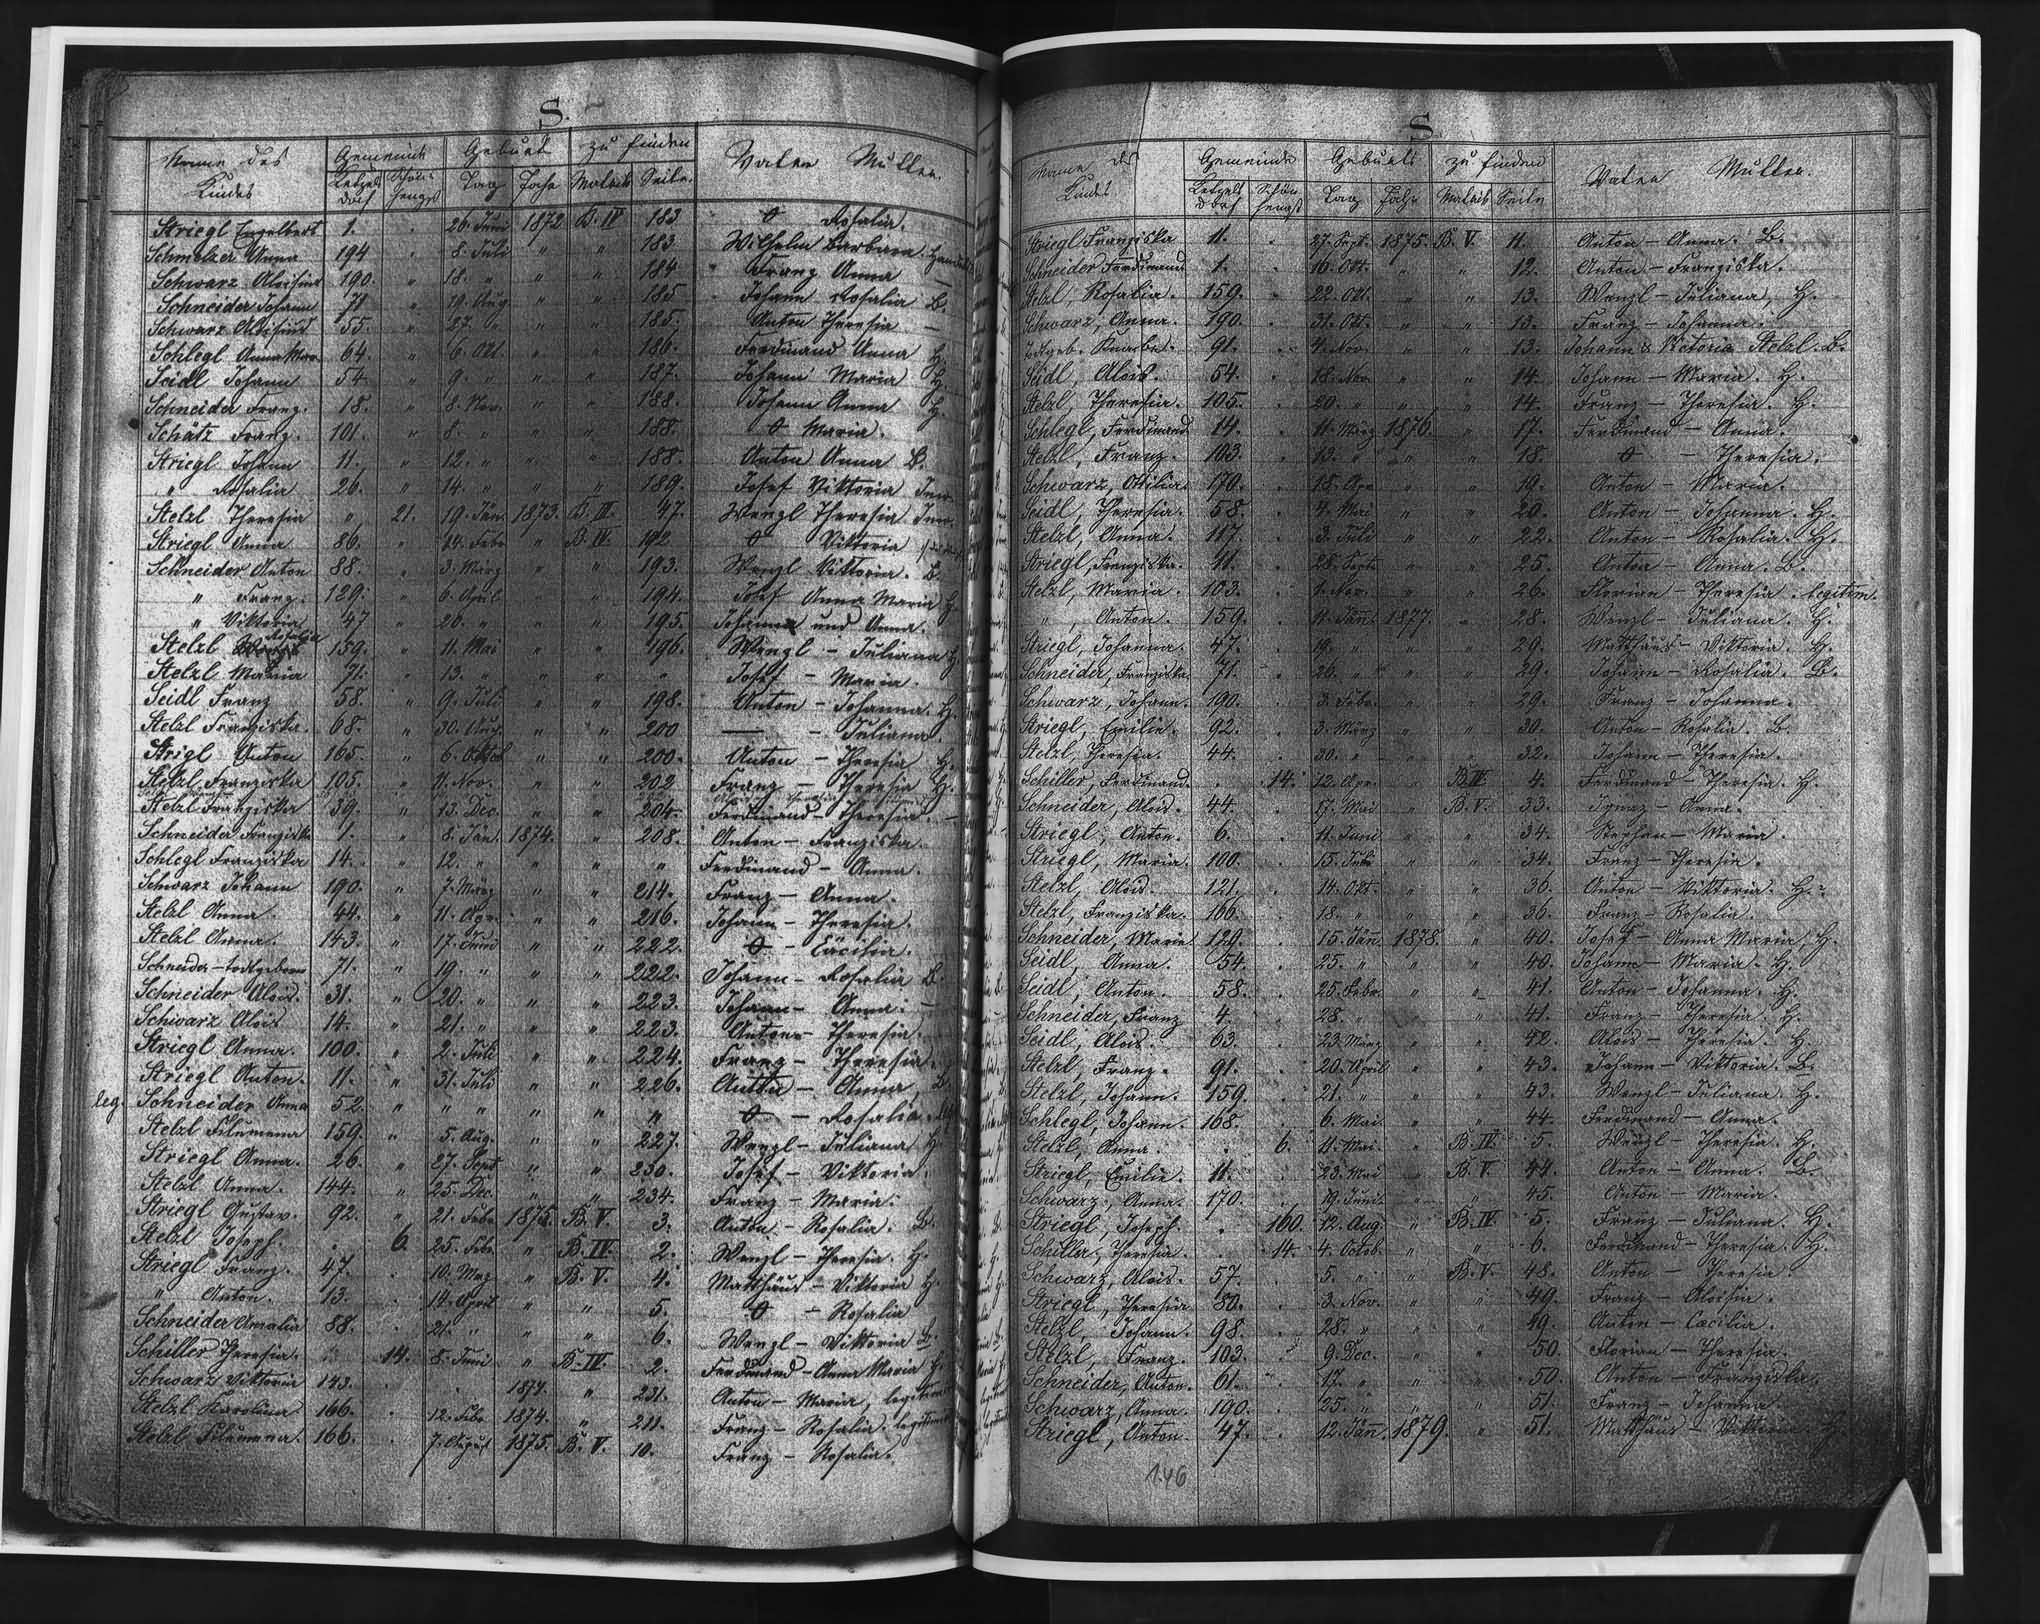 S.
Name des Kindes Gemeinde Geburt zu finden Vater Mutter.
Ketzelsdorf Schönhengst Tag Jahr Matrik Seite.
Striegl Engelbert 1. 26. Juni 1872 B. IV 183 O Rosalia.
Schmelzer Anna 194 " 8. Juli " " 183 Wilhelm Barbara.
Schwarz Aloisius 190. " 18. " " " 184 Franz Anna —
Schneider Johann 71 " 19. Aug " " 185 Johann Rosalia B.
Schwarz Aloisius 55. " 27. " " " 185. Anton Theresia —
Schlegl Anna Mar. 64. " 6. Okt. " " 186. Ferdinand Anna H.
Seidl Johann 54 " 9. " " " 187. Johann Maria H.
Schneider Franz. 18. " 8. Nov. " " 188. Johann Anna H.
Schätz Franz. 101. " 8. " " " 188. O Maria.
Striegl Johann 11. " 12. " " " 188. Anton Anna B.
" Rosalia 26. " 14. " " " 189. Josef Viktoria Inw.
Stelzl Theresia " 21. 19. Jän. 1873. B. III. 47. Wenzl Theresia Inw.
Striegl Anna 86. " 24. Febr " B. IV. 192 O Viktoria
Schneider Anton 88. " 3. März " " 193. Wenzl Viktoria. B.
" Franz. 129. " 6. April " " 194. Josef Anna Maria H.
" Viktoria 47 " 20. " " " 195. Johann und Anna.
Stelzl Rosalia 159. " 11. Mai " " 196. Wenzl – Juliana H.
Stelzl Maria 71. " 13. " " " " Josef – Maria.
Seidl Franz 58. " 9. Juli " " 198. Anton – Johanna. H.
Stelzl Franziska. 68. " 30. Aug. " " 200 — – Juliana.
Strigl Anton 165. " 6. Oktob " " 200. Anton – Theresia H.
Stelzl Franziska 105. " 11. Nov. " " 202 Franz – Theresia H.
Stelzl Franziska 39. " 13. Dec. " " 204. Ferdinand – Theresia. –
Schneider Franziska 1. " 8. Jän. 1874. " 208. Anton – Franziska.
Schlegl Franziska 14. " 12. " " " " Ferdinand – Anna.
Schwarz Johann 190. " 7. März " " 214. Franz – Anna.
Stelzl Anna. 44. " 11. Apr. " " 216. Johann – Theresia.
Stelzl Anna. 143. " 17. Juni " " 222. O – Cäcilia.
Schneider – todtgeboren 71. " 19. " " " 222. Johann – Rosalia B.
Schneider Alois. 31. " 20. " " " 223. Johann – Anna. –
Schwarz Alois 14. " 21. " " " 223. Anton – Theresia.
Striegl Anna. 100. " 2. Juli " " 224. Franz – Theresia.
Striegl Anton. 11. " 31. Juli " " 226. Anton – Anna B.
leg. Schneider Anna 52. " " " " " " O – Rosalia
Stelzl Filumena 159. " 5. Aug. " " 227. Wenzl – Juliana H.
Striegl Anna. 26. " 27. Sept " " 230. Josef – Viktoria.
Stelzl Anna. 144. " 25. Dec. " " 234. Franz – Maria.
Striegl Gustav. 92. " 21. Febr 1875. B. V. 3. Anton – Rosalia. B.
Stelzl Joseph. . 6. 25. Febr. " B. IV. 2. Wenzl – Theresia. H.
Striegl Franz. 47. . 10. Mrz " B. V. 4. Matthäus – Viktoria H.
" Anton. 13. . 14. April " " 5. O – Rosalia
Schneider Amalia 88. . 21. " " " 6. Wenzl – Viktoria B.
Schiller Theresia. 14. 8. Juni " B. IV. 2. Ferdinand – Anna Maria H.
Schwarz Viktoria 143. . 1874. " 231. Anton – Maria, legitimirt
Stelzl Karolina 166. . 12. Febr 1874. " 211. Franz – Rosalia. legitimirt
Stelzl Filumena. 166. . 7. August 1875. B. V. 10. Franz – Rosalia.
S
Name des Kindes Gemeinde Geburts zu finden Vater Mutter.
Ketzelsdorf Schönhengst Tag Jahr Matrik Seite
Striegl Franziska 11. . 27. Sept. 1875. B. V. 11. Anton – Anna. B.
Schneider Ferdinand 1. . 16. Okt. " " 12. Anton – Franziska.
Stelzl, Rosalia. 159. " 22. Okt. " " 13. Wenzl – Juliana, H.
Schwarz, Anna. 190. . 31. Okt. " " 13. Franz – Johanna.
Todtgeb. Knabe. 91. . 4. Nov. " " 13. Johann & Victoria Stelzl. B.
Seidl, Alois. 54. . 18. Nov. " " 14. Johann – Maria. H.
Stelzl, Theresia. 105. . 20. " " " 14. Franz – Theresia. H.
Schlegl, Ferdinand 14. . 11. März 1876. " 17. Ferdinand – Anna.
Stelzl, Franz. 103. . 13. " " " 18. O – Theresia.
Schwarz, Ottilia. 170. . 18. Apr. " " 19. Anton – Maria.
Seidl, Theresia. 58. . 4. Mai " " 20. Anton – Johanna. H.
Stelzl, Anna. 117. . 3. Juli " " 22. Anton – Rosalia. H.
Striegl, Franziska. 11. . 28. Sept. " " 25. Anton – Anna. B.
Stelzl, Maria. 103. . 1. Nov. " " 26. Florian – Theresia. legitim.
" , Anton. 159. . 11. Jän. 1877. " 28. Wenzl – Juliana. H.
Striegl, Johanna. 47. . 19. " " " 29. Matthäus – Viktoria. H.
Schneider, Franziska. 71. . 26. " " " 29. Johann – Rosalia. B.
Schwarz, Johann. 190. . 3. Febr. " " 29. Franz – Johanna.
Striegl, Emilie. 92. . 3. März " " 30. Anton – Rosalia. B.
Stelzl, Theresia. 44. . 30. " " " 32. Johann – Theresia.
Schiller, Ferdinand. . 14. 12. Apr. " B. IV. 4. Ferdinand – Theresia. H.
Schneider, Alois. 44. . 17. Mai " B. V. 33. Ignaz – Anna.
Striegl, Anton. 6. . 11. Juni " " 34. Stephan – Maria.
Striegl, Maria. 100. . 15. Juli " " 34. Franz – Theresia.
Stelzl, Alois. 121. . 14. Okt. " " 36. Anton – Viktoria. H.
Stelzl, Franziska. 166. . 18. " " " 36. Franz – Rosalia.
Schneider, Marie. 129. . 15. Jän. 1878. " 40. Josef – Anna Maria, H.
Seidl, Anna. 54. . 25. " " " 40. Johann – Maria. H.
Seidl, Anton. 58. . 25. Febr. " " 41. Anton – Johanna. H.
Schneider, Franz 4. . 28. " " " 41. Franz – Theresia. H.
Seidl, Alois. 63. . 23. März " " 42. Alois – Theresia. H.
Stelzl, Franz. 91. . 20. April " " 43. Johann – Viktoria. B.
Stelzl, Johann. 159. . 21. " " " 43. Wenzl – Juliana. H.
Schlegl, Johann. 168. . 6. Mai " " 44. Ferdinand – Anna.
Stelzl, Anna. . 6. 11. Mai. " B. IV. 5. Wenzl – Theresia. H.
Striegl, Emilie. 11. . 23. Mai " B. V. 44. Anton – Anna. B.
Schwarz, Anna. 170. . 19. Juni. " " 45. Anton – Maria.
Striegl, Joseph. . 160. 12. Aug. " B. IV. 5. Franz – Juliana. H.
Schiller, Theresia. . 14. 4. Octob. " " 6. Ferdinand – Theresia. H.
Schwarz, Alois. 57. . 5. " " B. V. 48. Anton – Theresia.
Striegl, Theresia 80. . 3. Nov. " " 49. Franz – Aloisia.
Stelzl, Johann. 98. . 28. " " " 49. Anton – Cæcilia.
Stelzl, Franz. 103. . 9. Dec. " " 50. Florian – Theresia.
Schneider, Anton. 61. . 17. " " " 50. Anton – Franziska.
Schwarz, Anna. 190. . 25. " " " 51. Franz – Johanna.
Striegl, Anton. 47. . 12. Jän. 1879. " 51. Matthäus – Viktoria H.
146